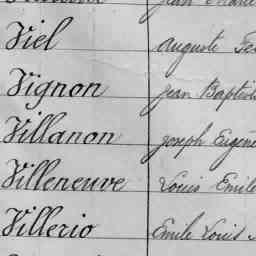 Viel Auguste
Vignon Jean Baptist
Villanon Joseph Eugène
Villeneuve Louis Emile
Villerio Emile Louis